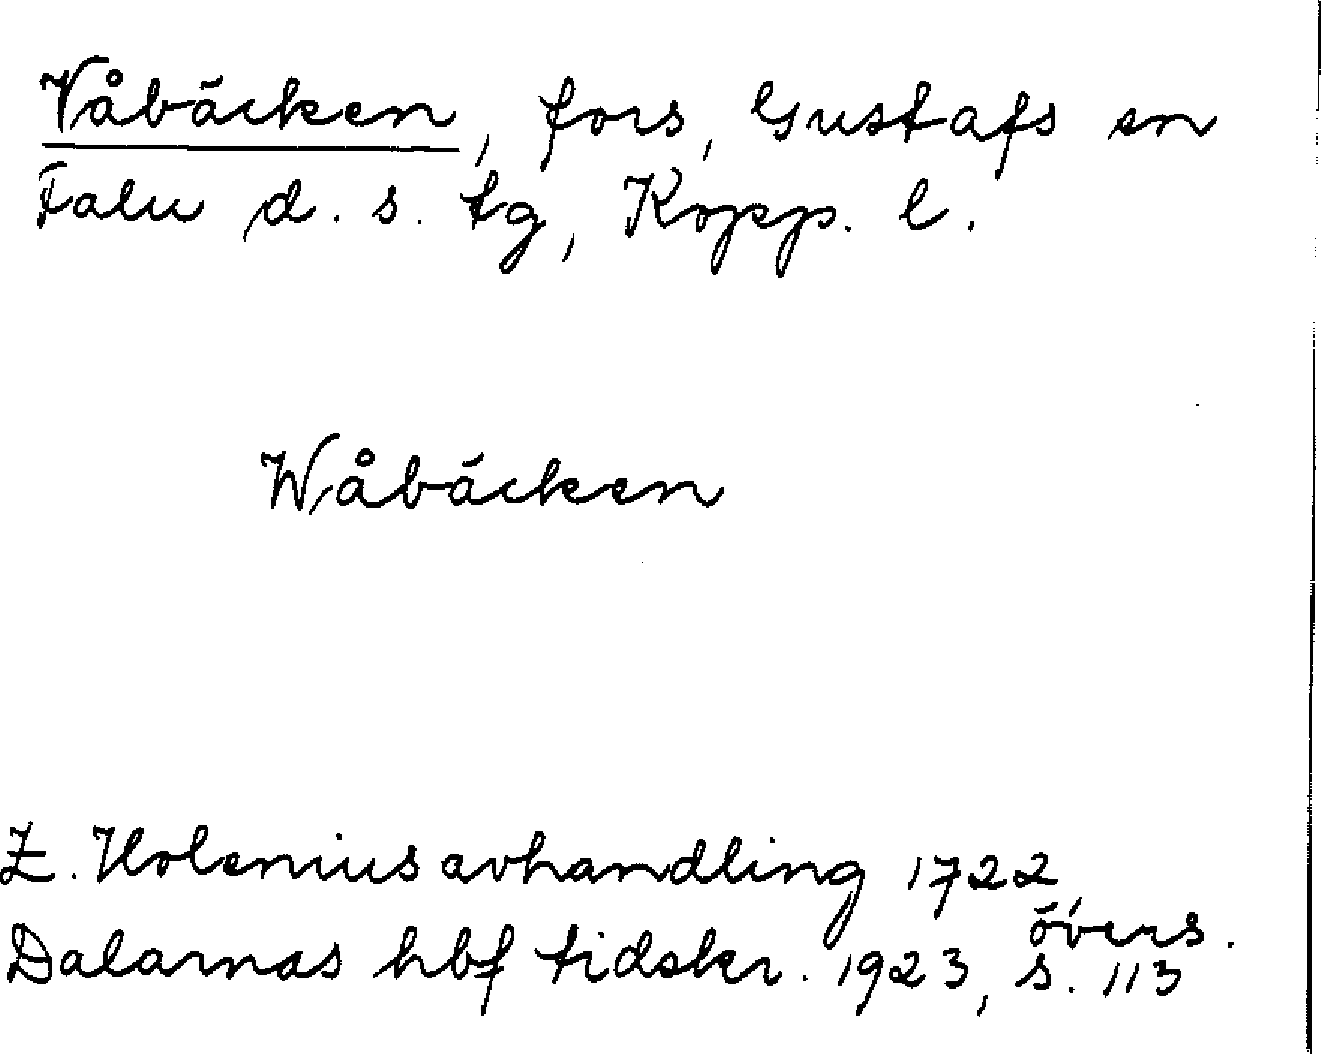 Våbäcken, fors, Gustafs sn
Falu d. s. tg, Kopp. l.
Wåbäcken
Z. Holenius avhandling 1722,
övers.
Dalarnas hbf tidskr. 1923, s. 113